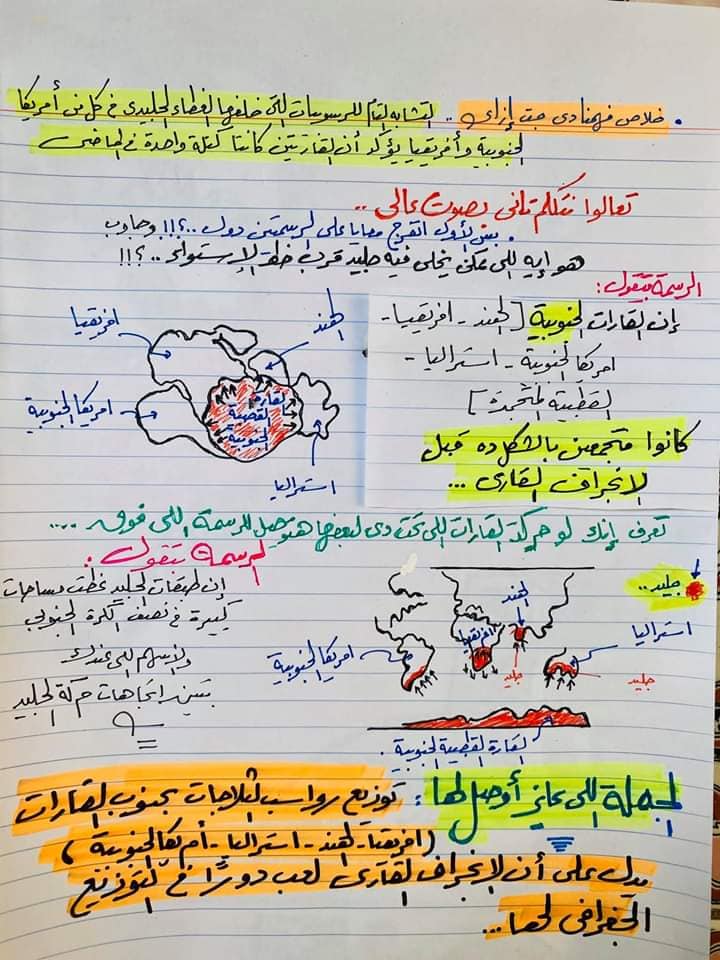 . خلاص فهمنا دى جت إزاى .. التشابه التام للرسوبيات التى خلفها الغطاء الجليدى فى كل من أمريكا
الجنوبية وأفريقيا يؤكد أن القارتين كانتا كتلة واحدة فى الماضى
تعالوا نتكلم تانى بصوت عالى ..
. بس الأول اتفرج معايا على الرسمتين دول ..؟!!! وجاوب
هو إيه اللى ممكن يخلى فيه جليد قرب خط الإستواء ..؟!!!
الرسمة بتقول:
إن القارات الجنوبية [الهند - افريقيا -
امريكا الجنوبية - استراليا -
القطبية المتجمدة]
كانوا متجمعين بالشكل ده قبل
الإنجراف القارى ...
افريقيا
الهند
امريكا الجنوبية
القارة
القطبية
الجنوبية
استراليا
تعرف إنك لو حركة القارات اللى تحت دى لبعضها هتوصل للرسمة اللى فوق ....
الرسمة بتقول:
إن طبقات الجليد غطت مساحات
كبيرة فى نصف الكرة الجنوبى
والأسهم اللى عندك
بتبين اتجاهات حركة الجليد
جليد ..
الهند
استراليا
افريقيا
امريكا الجنوبية
جليد
جليد
القارة القطبية الجنوبية .
الجملة اللى عايز أوصل لها : توزيع رواسب الثلاجات بجنوب القارات
(افريقيا - الهند - استراليا - أمريكا الجنوبية)
يدل على أن الإنجراف القارى لعب دورًا فى التوزيع
الجغرافى لها ...